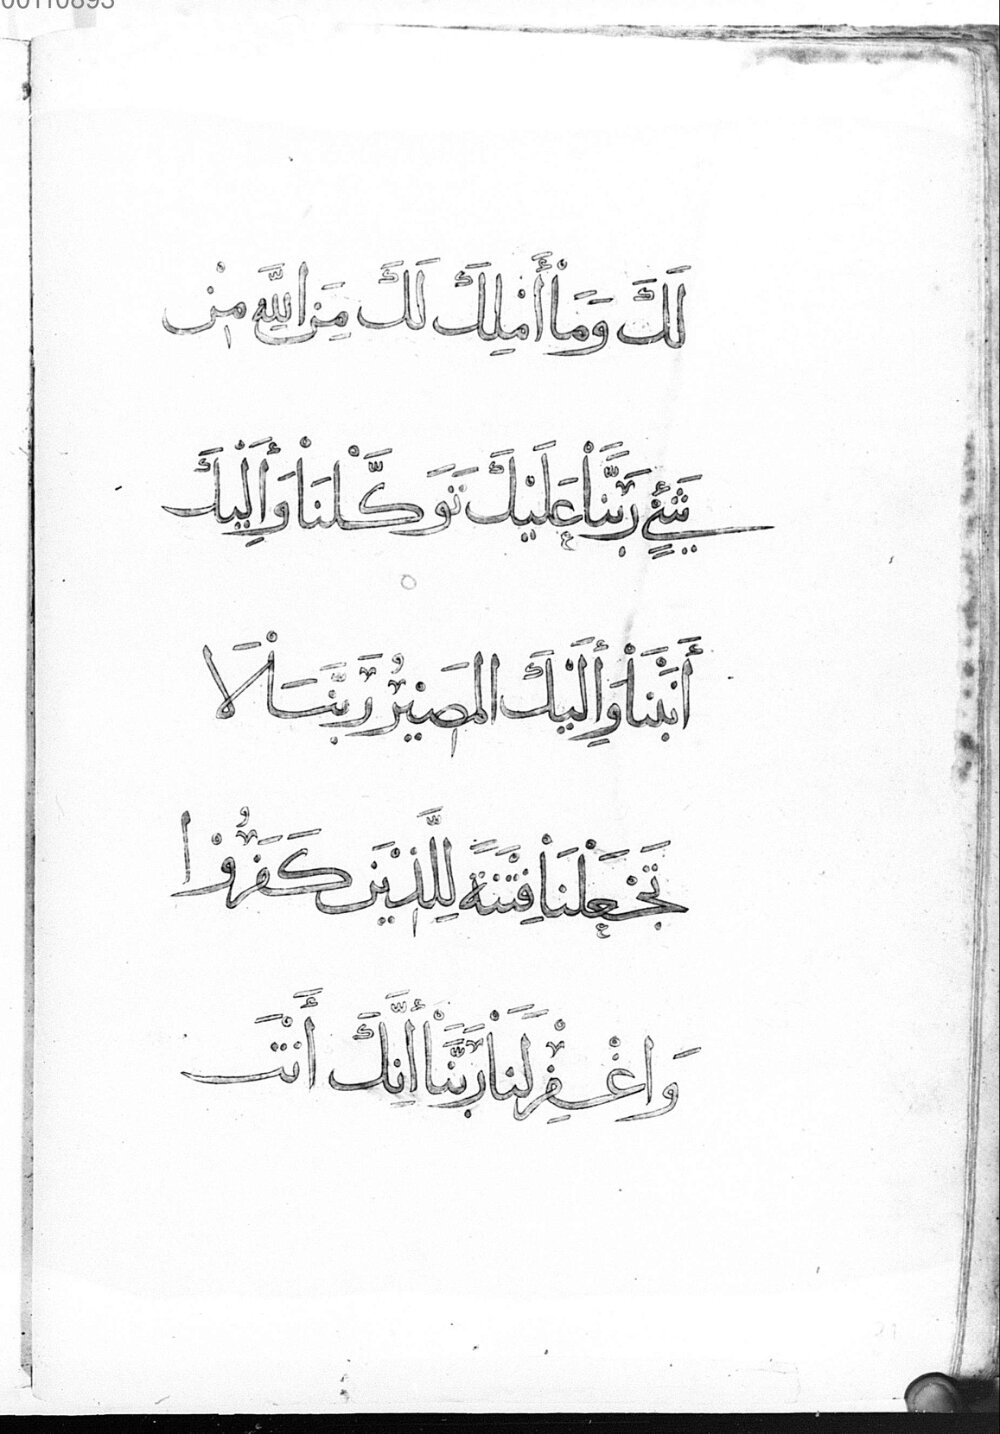 00110893
لَكَ وَمَا أَمْلِكُ لَكَ مِنَ اللَّهِ مِنْ
شَيْءٍ رَبَّنَا عَلَيْكَ تَوَكَّلْنَا وَإِلَيْكَ
أَنَبْنَا وَإِلَيْكَ الْمَصِيْرُ رَبَّنَا لَا
تَجْعَلْنَا فِتْنَةً لِلَّذِيْنَ كَفَرُوْا
وَاغْفِرْ لَنَا رَبَّنَا إِنَّكَ أَنْتَ